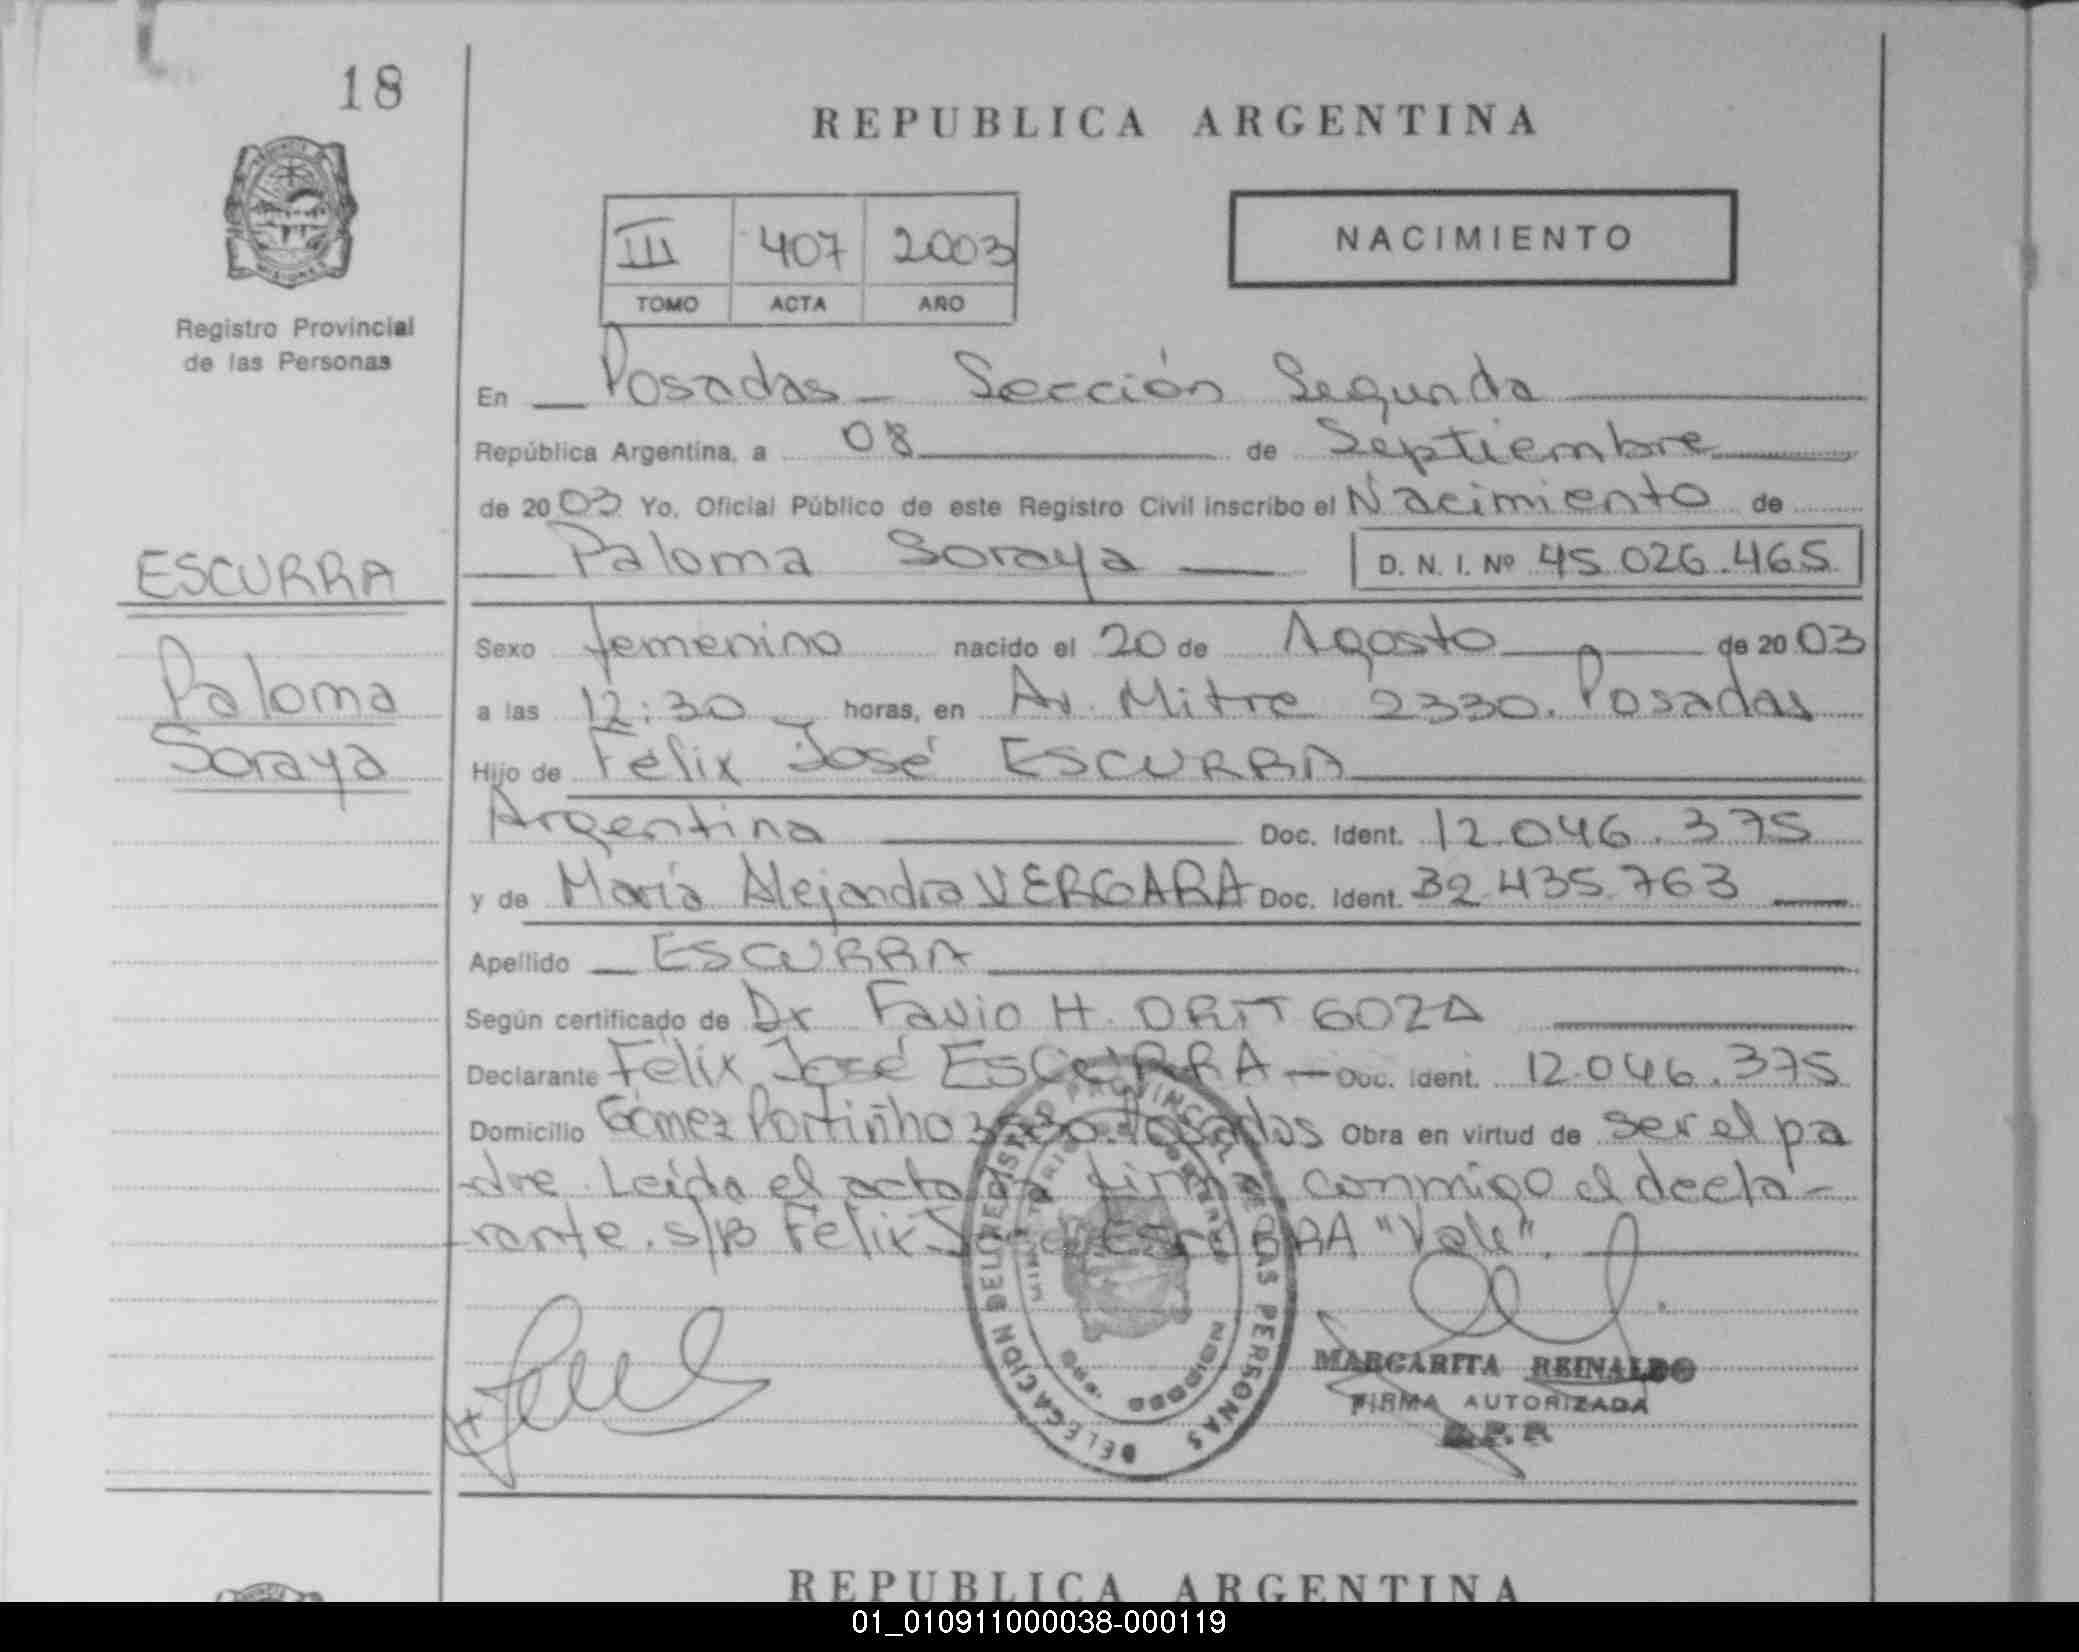 18
REPUBLICA ARGENTINA
III 407 2003
TOMO ACTA AÑO
NACIMIENTO
Registro Provincial
de las Personas
En Posadas - Sección Segunda
República Argentina, a 08 de Septiembre
de 2003 Yo, Oficial Público de este Registro Civil inscribo el Nacimiento de
Paloma Soraya D. N. I. Nº 45.026.465
ESCURRA
Paloma
Soraya
Sexo femenino nacido el 20 de Agosto de 2003
a las 12:30 horas, en Av. Mitre 2330. Posadas
Hijo de Félix José ESCURRA
Argentina Doc. Ident. 12.046.375
y de María Alejandra VERGARA Doc. Ident. 32.435.763
Apellido ESCURRA
Según certificado de Dr Favio H.
Declarante Félix José ESCURRA - Doc. Ident. 12.046.375
Domicilio Gómez Portinho Posadas Obra en virtud de ser el pa
dre. Leída el acta firma conmigo el decla-
rante. s/B Félix "Vale".
DELEGACION DEL REGISTRO PROVINCIAL DE LAS PERSONAS
MARGARITA REINALDO
FIRMA AUTORIZADA
REPUBLICA ARGENTINA
01_010911000038-000119